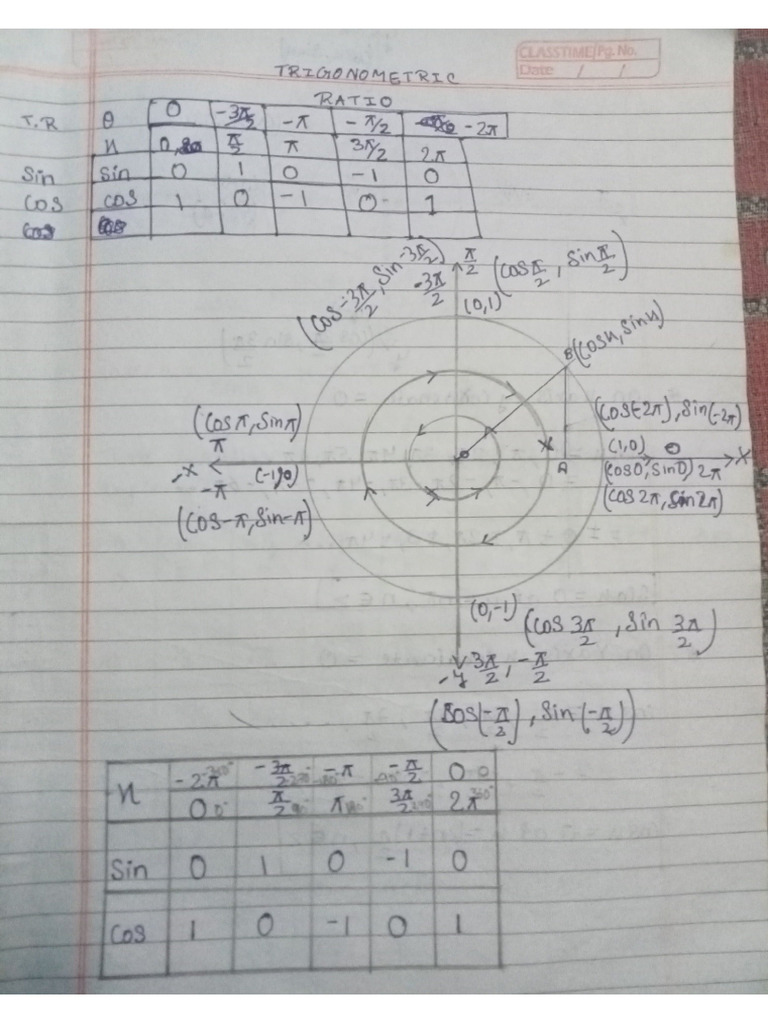 CLASSTIME/Pg. No.
Date / /
TRIGONOMETRIC
RATIO
T.R θ 0 -3π/2 -π -π/2 -2π
x 0, π/2 π 3π/2 2π
Sin sin 0 1 0 -1 0
Cos cos 1 0 -1 0 1
(Cos-3π/2, Sin-3π/2) π/2 (Cosπ/2, Sinπ/2)
-3π/2
(0,1)
B(Cosx, Sinx)
(Cosπ, Sinπ) (Cos(-2π), Sin(-2π)
π (1,0) 0
-X (-1,0) O A X
-π (Cos0, Sin0) 2π
(Cos-π, Sin-π) (Cos2π, Sin2π)
(0,-1) (Cos 3π/2, Sin 3π/2)
-y 3π/2, -π/2
(Cos(-π/2), Sin(-π/2))
x -2π 360° -3π/2 270° -π -180° -π/2 -90° 0 0
0 0° π/2 90° π 180° 3π/2 270° 2π 360°
Sin 0 1 0 -1 0
Cos 1 0 -1 0 1